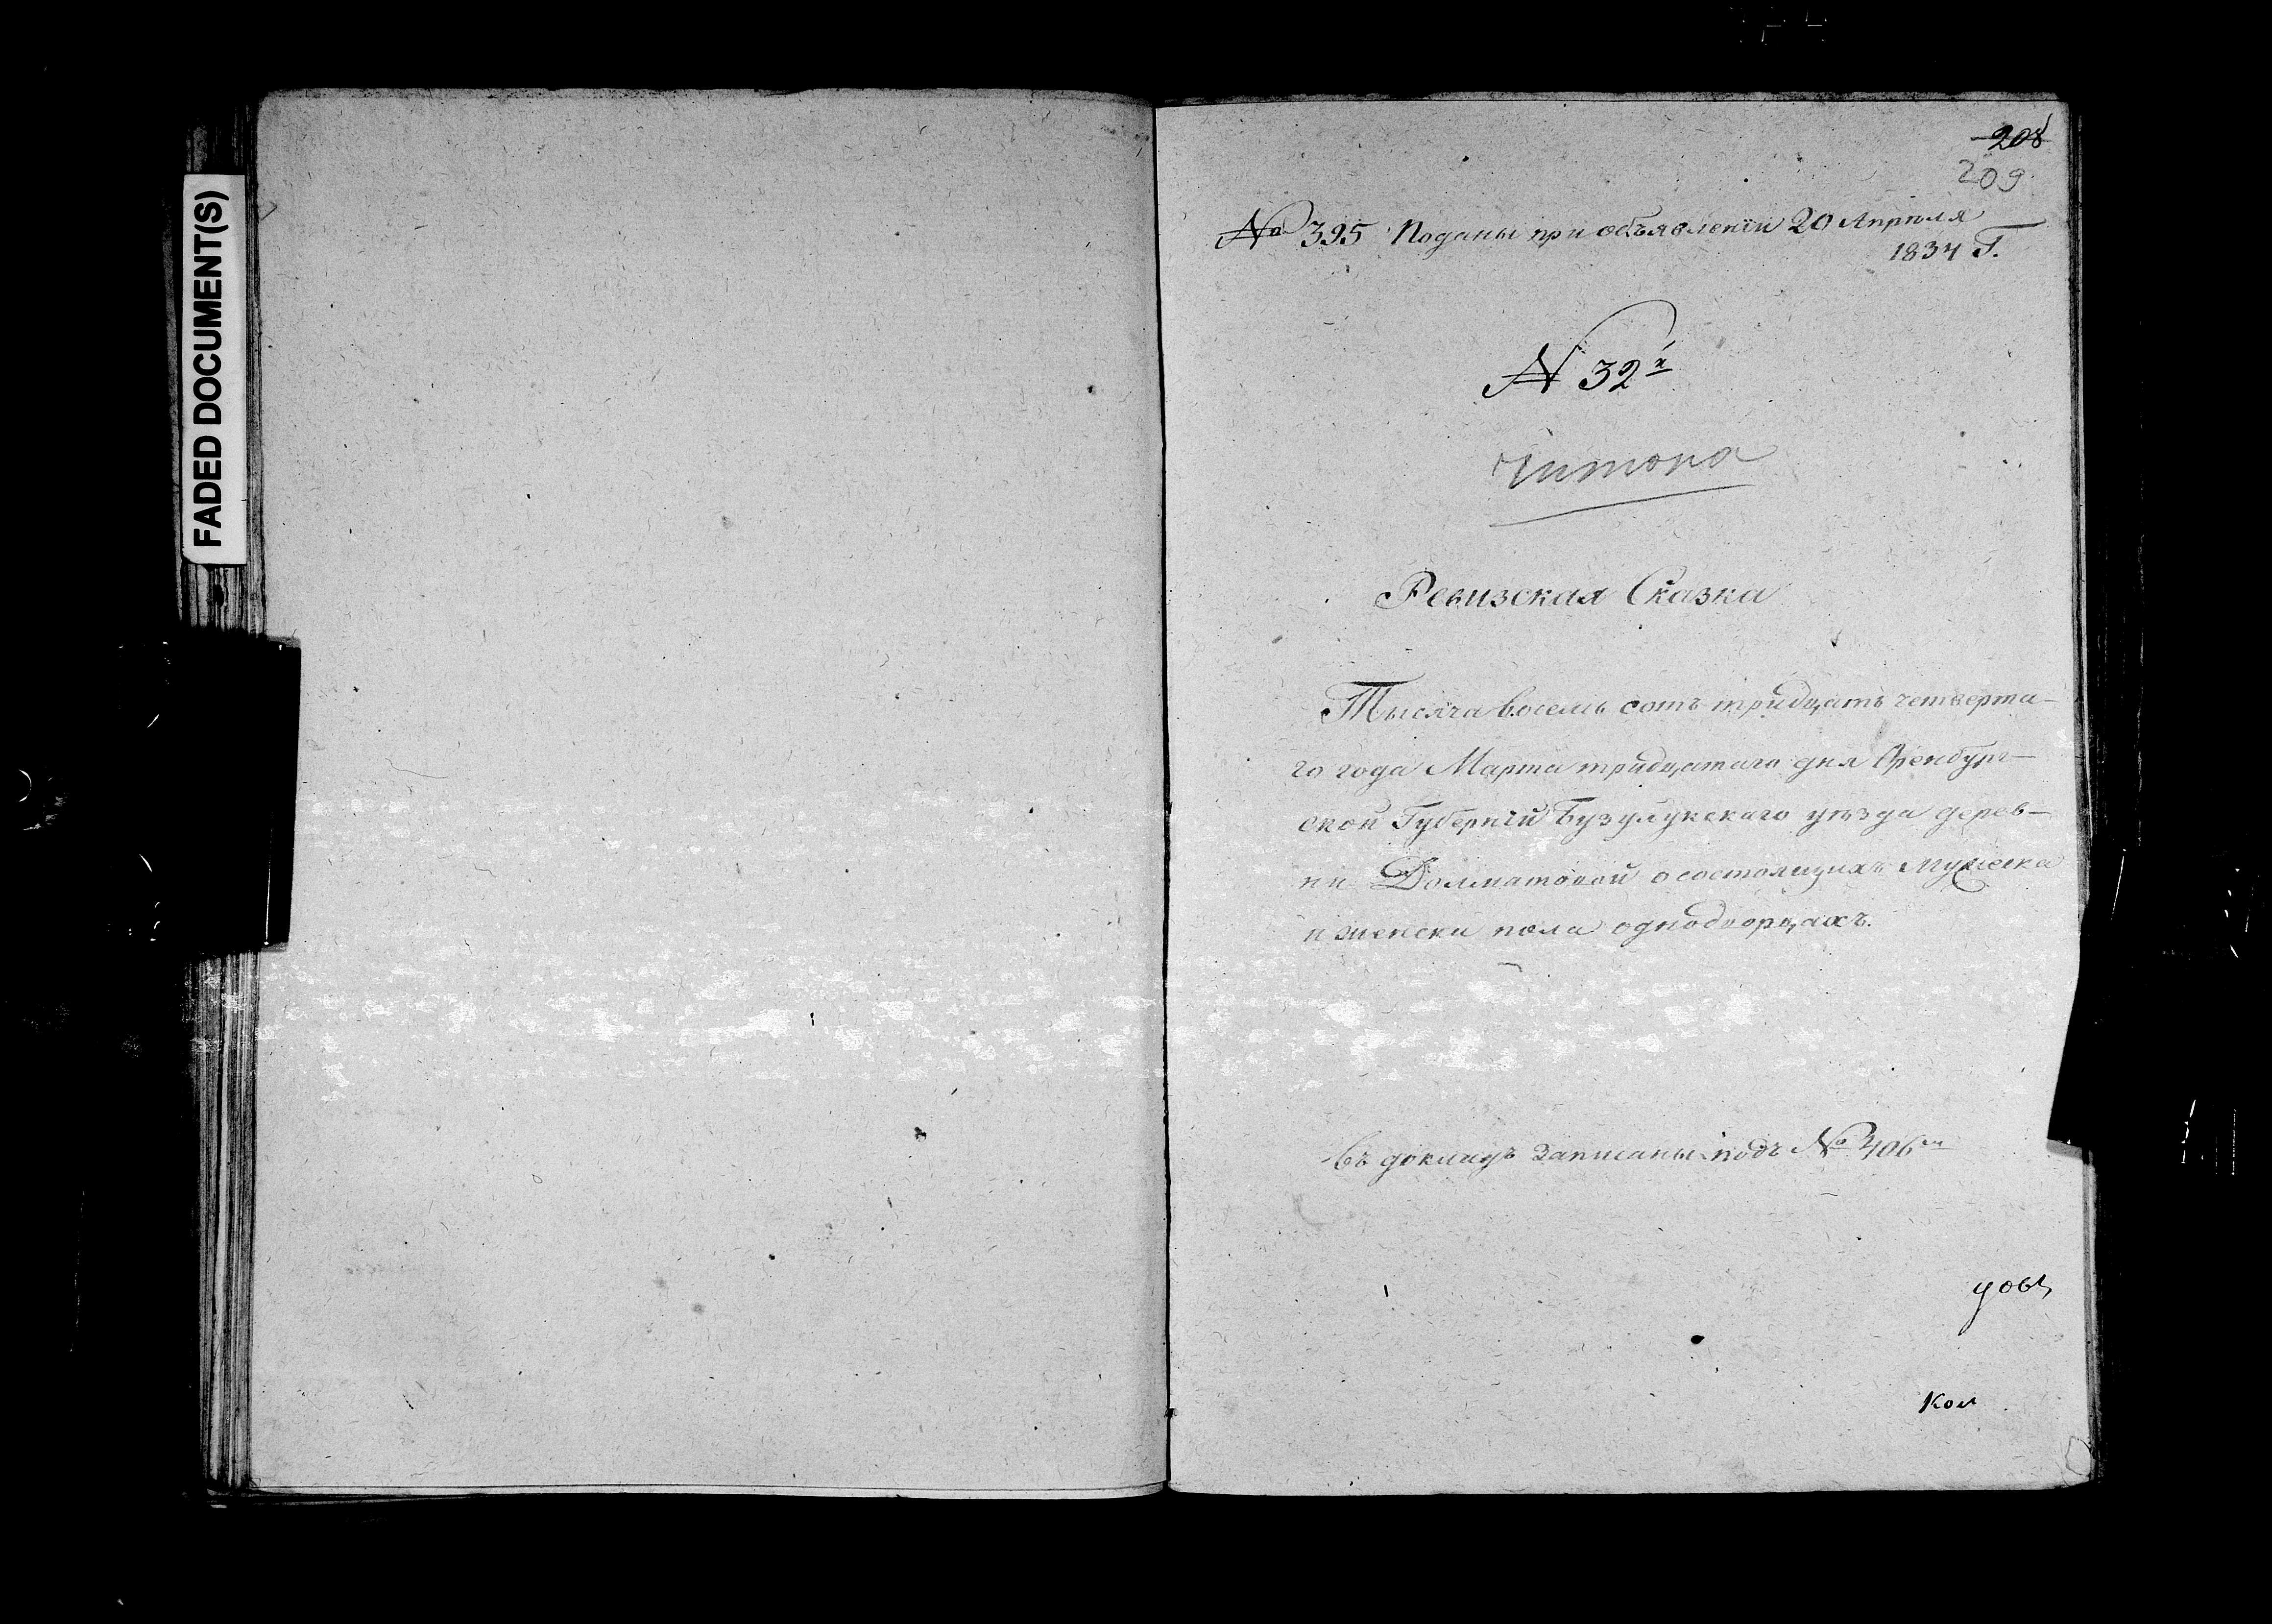 FADED DOCUMENT(S)
208
209
№ 395 Поданы при объявленіи 20 Апрѣля
1834 Г.
N 32й
Ревизская Сказка
Тысяча восемь сотъ тридцать четверта-
го года Марта тридцатаго дня Оренбург-
ской Губерніи Бузулукскаго уѣзда дерев-
ни Долматовой о состоящихъ мужеска
и женска пола однодворцахъ.
записаны подъ № 406м
уовъ
Кол